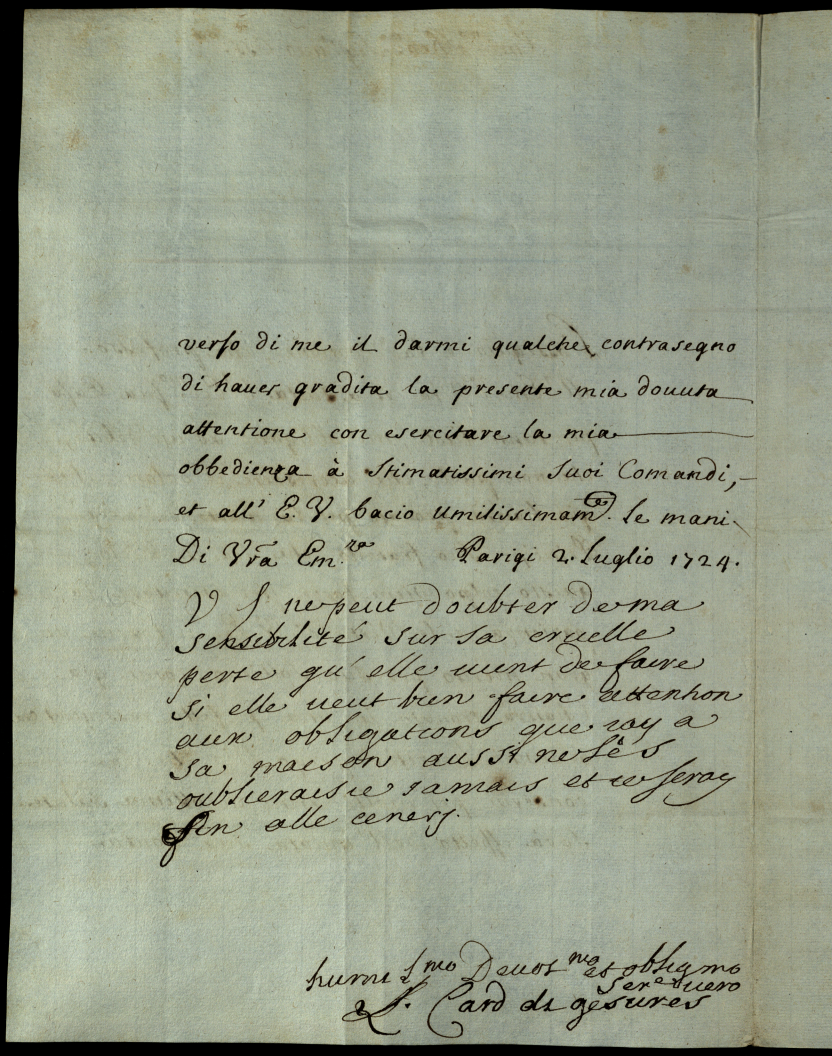 verso di me il darmi qualche contrasegno
di haver gradita la presente mia dovuta
attentione con esercitare la mia
obbedienza à Stimatissimi Suoi Comandi,
et all' E. V. bacio Umilissimam.te le mani
Di Vrã Em.za Parigi 2. Luglio 1724.
V S ne peut doubter de ma
sensibilité sur sa cruelle
perte qu'elle vient de faire
si elle veut bien faire attention
aux obligations que iay a
sa maison aussi ne lês
oublieraisie iamais et ie seray
fin alle cenerj.
humilmo Devotmo et obligmo
Sere vero
L. Card de gêsvres